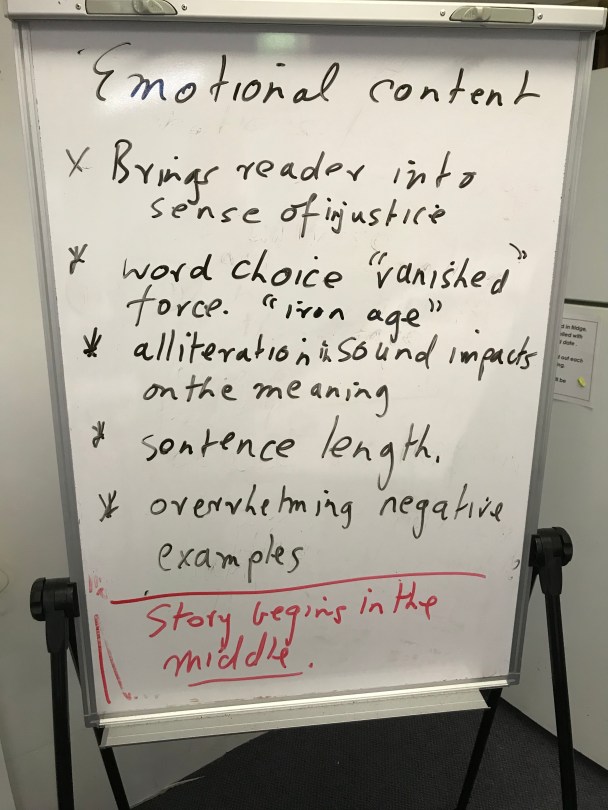 Emotional content
* Brings reader into
sense of injustice
* word choice "vanished"
force. "iron age"
* alliteration in sound impacts
on the meaning
* sentence length.
* overwhelming negative
examples
Story begins in the
middle.